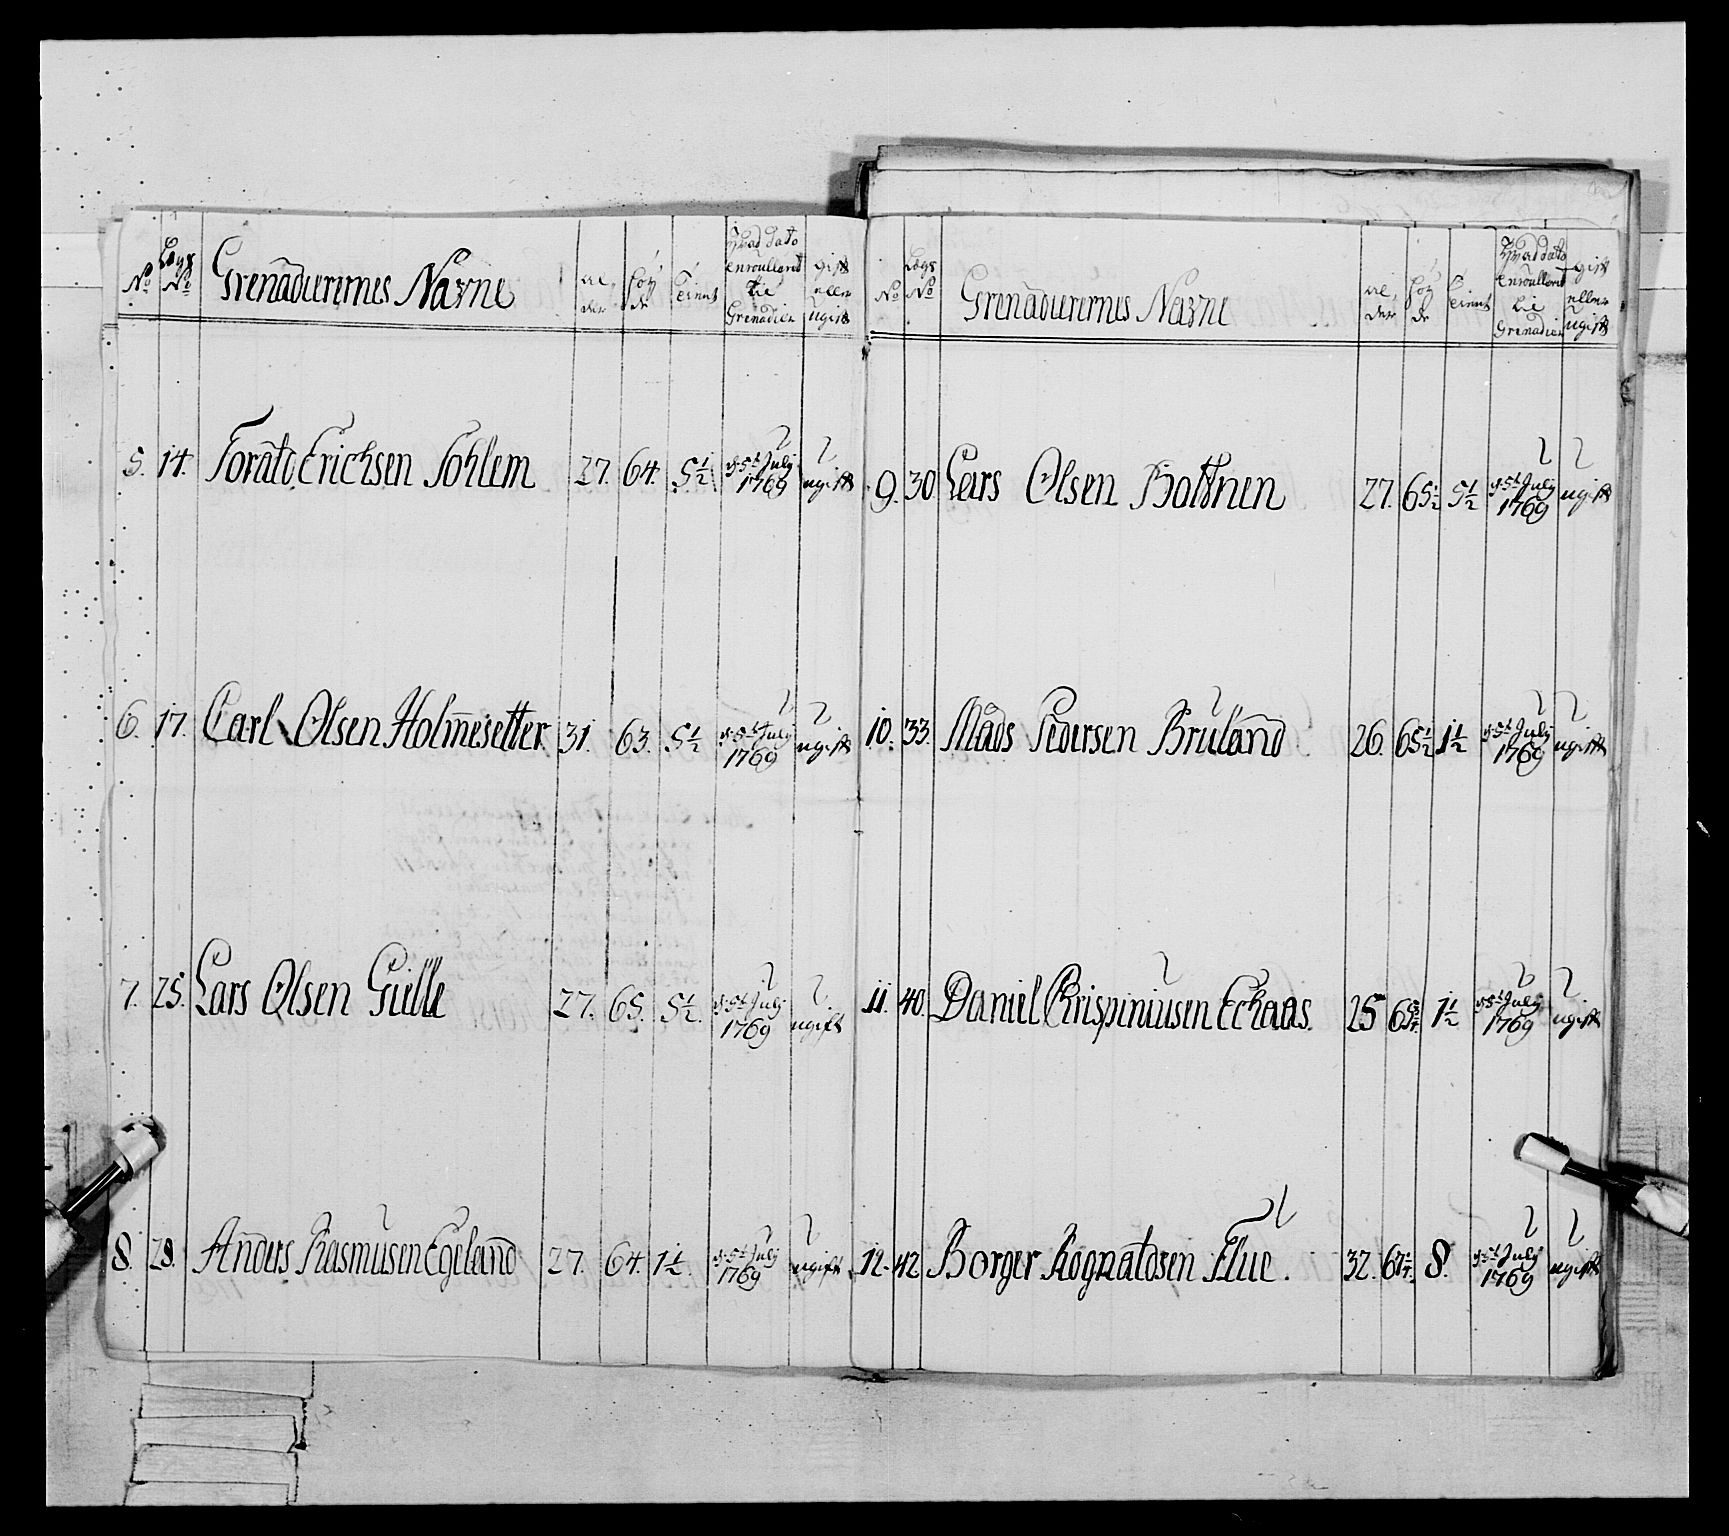 No Lægs No Grenadierernes Navne Al der Høy de Tiennt Hvad dato Enroulleret til Grenadier gift eller ugift
5. 14. Erichsen Sohlem 27. 64. 5½ d: 5t July 1769 ugift
6. 17. Carl Olsen Holmesetter 31. 63. 5½ d: 5t July 1769 ugift
7. 25. Lars Olsen Gielle 27. 65. 5½. d: 5t July 1769 ugift
8. 28. Anders Rasmusen Egeland 27. 64. 1½. d: 5t July 1769 ugift
No Lægs No Grenadierernes Navne Al der Høy de Tiennt Hvad dato Enroulleret til Grenadier gift eller ugift
9. 30. Lars Olsen Bottnen 27. 65½ 5½ d: 5t July 1769 ugift
10. 33. Mads Pedersen Bruland 26. 65½ 1½ d: 5t July 1769 ugift
11. 40. Daniel Krispiniusen Eckaas. 25 65¾. 1½ d: 5t July 1769 ugift
12. 42 Borger Rognaldsen Flue. 32. 67¼. 8. d: 5t July 1769 ugift